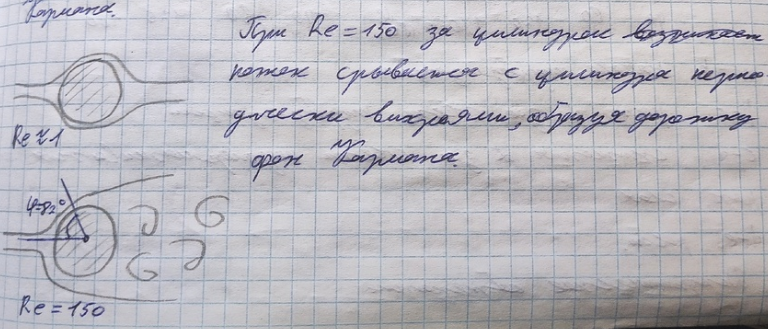 Кармана.
При Re=150 за цилиндром возникает
поток срывается с цилиндра перио
дически вихрями, образуя дорожку
фон Кармана.
Re<1
φ=82°
Re=150